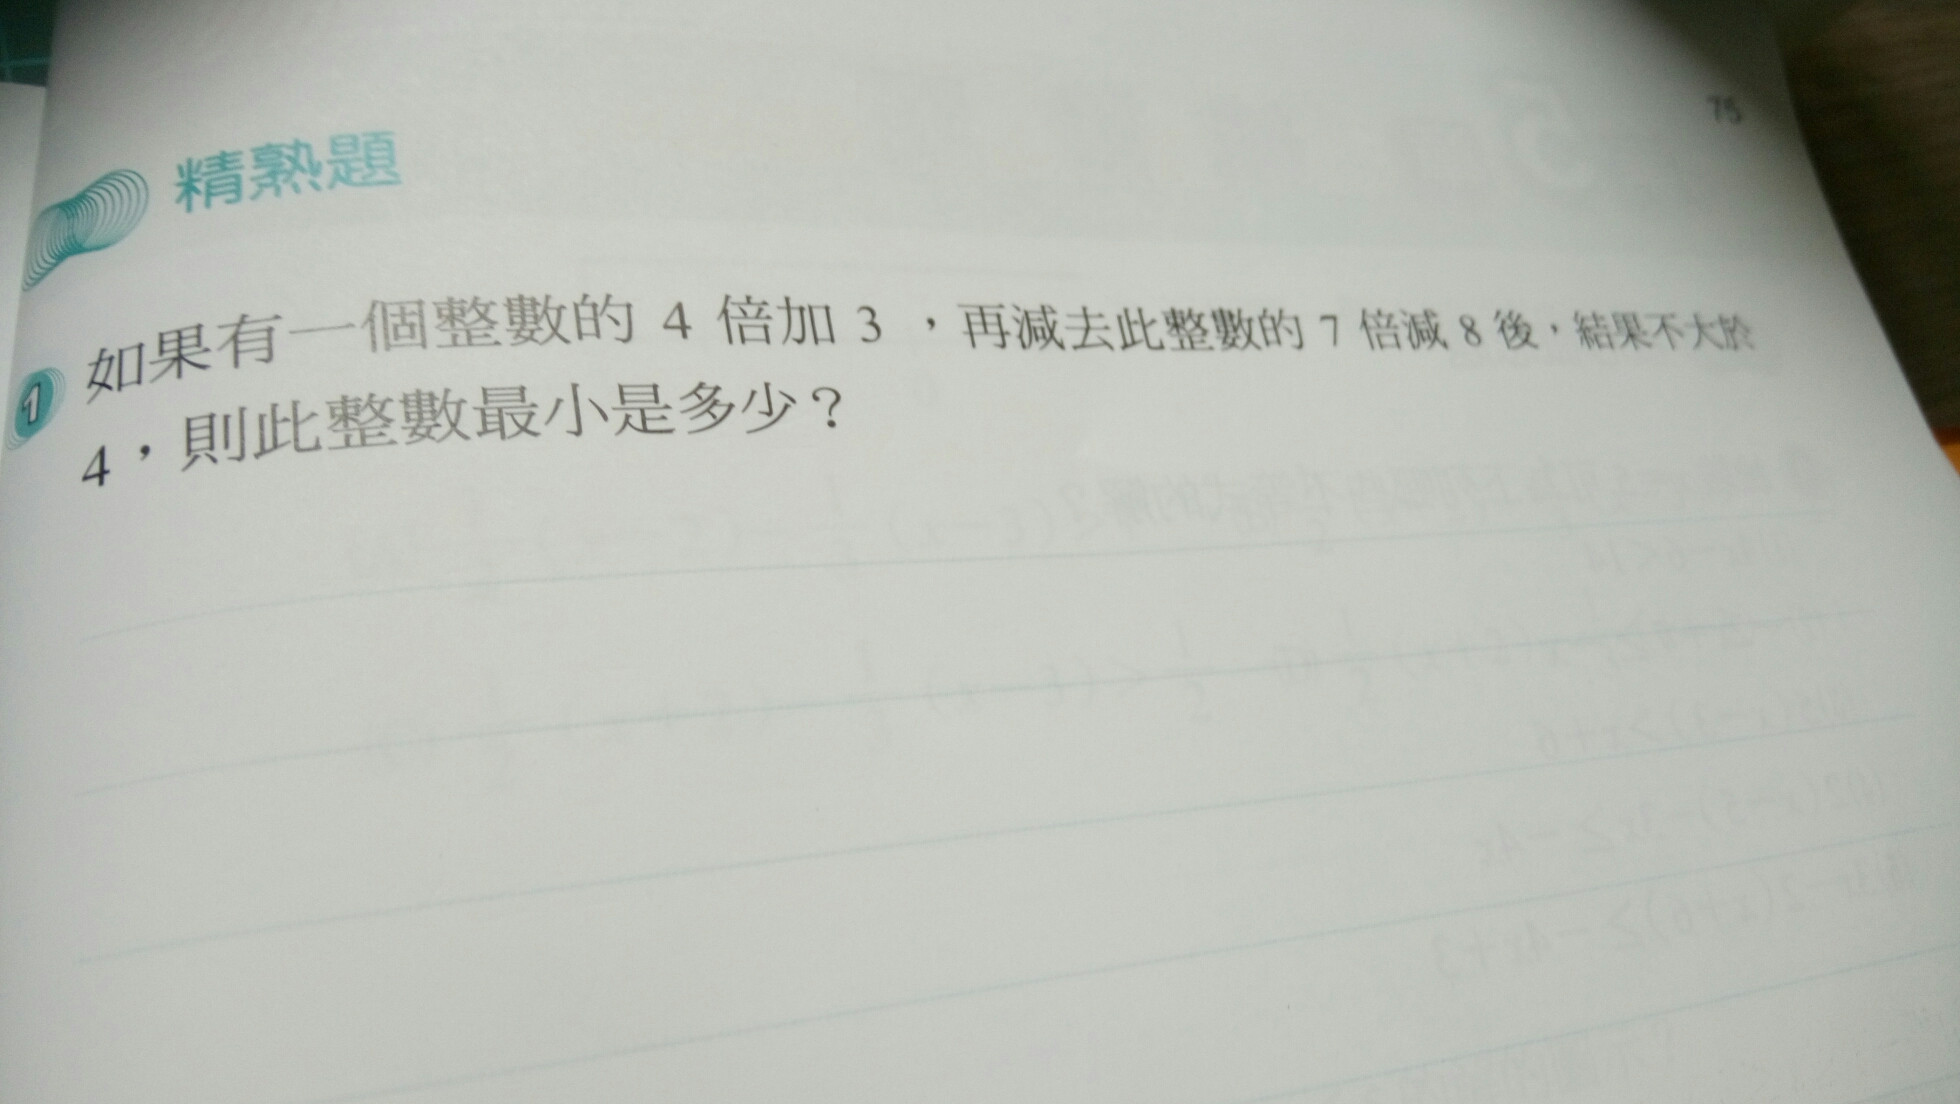 75
精熟題
1 如果有一個整數的 4 倍加 3 ,再減去此整數的 7 倍減 8 後,結果不大於
4,則此整數最小是多少?